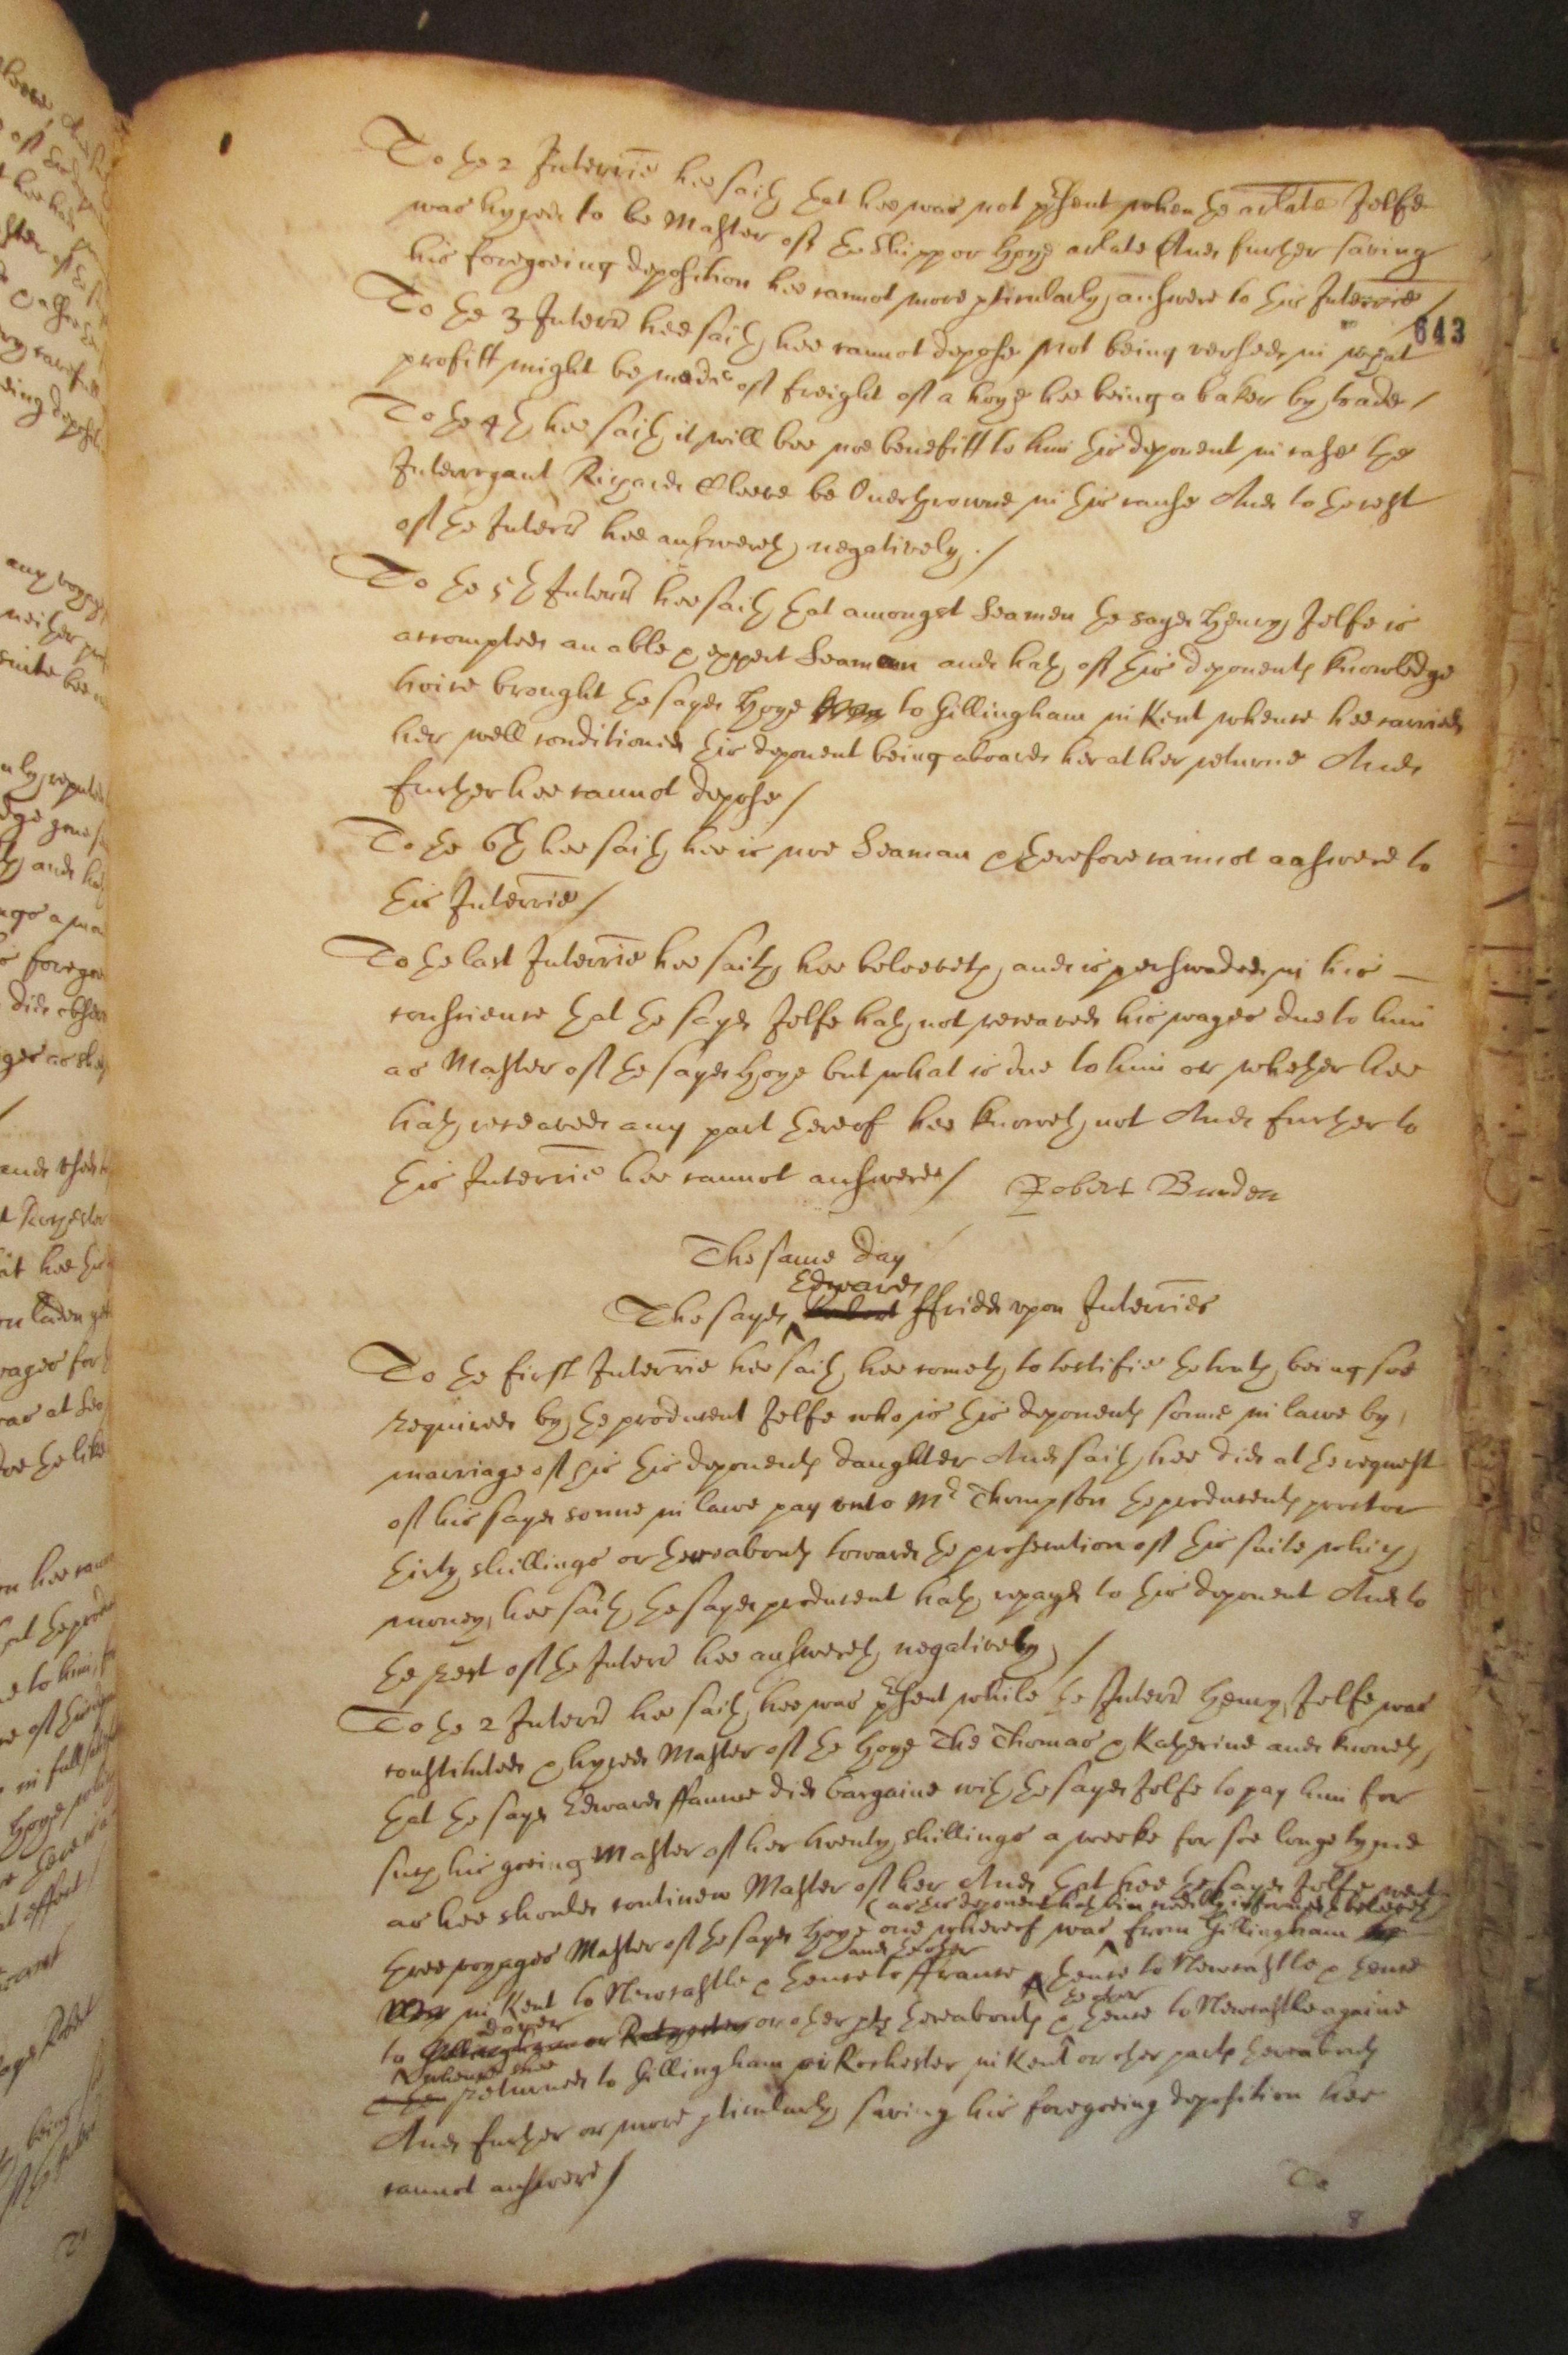 To the 2 Interrie hee saith that hee was not present when the arlate Jelfe
was hyred to be Master of the Shipp or hoye arlate And further saving
his foregoeing deposition hee cannot more pticularly answere to this Interrie /
643
To the 3 Interr hee saith hee cannot depose not being versed in what
profitt might be made of freight of a hoye hee being a baker by trade /
To the 4th hee saith it will bee noe benefitt to him this deponent in case the
Interrogant Richard Cleere be Overthrowne in this cause And to the rest
of the Interr hee answereth negatively. /
To the 5th Interr hee saith that amongst Seamen the sayd Henry Jelfe is
accompted an able & expert Seaman and hath of this deponents knowledge
twice brought the sayd hoye to Gillingham in Kent whence hee carried
her well conditioned this deponent being aboard her at her returne And
further hee cannot depose /
To the 6th hee saith hee is noe Seaman & therefore cannot answere to
this Interrie /
To the last Interrie hee saith hee beleeveth and is perswaded in his
conscience that the sayd Jelfe hath not receaved his wages due to him
as Master of the sayd hoye but what is due to him or whether hee
hath receaved any part thereof hee knoweth not And further to
this Interrie hee cannot answere / Robert Burden
The same day
Edward
The sayd ffridd upon Interries
To the first Interrie hee saith hee cometh to testifie the truth being soe
required by the producent Jelfe who is this deponents sonne in lawe by
marriage of his this deponents daughter And saith hee did at the request
of his sayd sonne in lawe pay unto Mr Thompson the producents proctor
thirty shillings or thereabouts towards the prosecution of this suite which
money hee saith the sayd producent hath repayd to this deponent And to
the rest of the Interr hee answereth negatively /
To the 2 Interr hee saith hee was present while the Interr Henry Jelfe was
constituted & hyred Master of the hoye The Thomas & Katherine and knoweth
that the sayd Edward ffanne did bargaine with the sayd Jelfe to pay him for
such his goeing Master of her twenty shillings a weeke for soe longe tyme
as hee should continew Master of her And that hee the sayd Jelfe went
(as this deponent hath bin credibly informed & beleiveth)
three voyages Master of the sayd hoye one whereof was from Gillingham
and the other
in Kent to Newcastle & thence to ffrance & thence to Newcastle & thence
dover
the other
to Gillingham or Rochester or other pts thereabouts & thence to Newcastle againe
whence shee
returned to Gillingham or Rochester in Kent or other parts thereabouts
And further or more pticularly saving his foregoeing deposition hee
cannot answere /
To
8